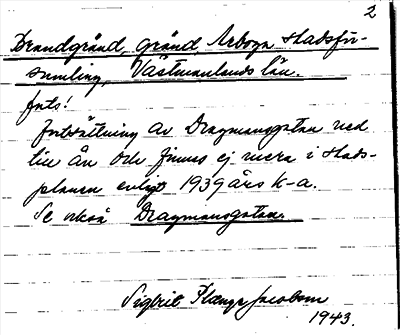 2
Brandgränd, gränd, Arboga stadsför-
samling, Västmanlands län.
forts!
Fortsättning av Dragmansgatan ned
till ån och finnes ej mera i stads-
planen enligt 1939 års k-a.
Se också Dragmansgatan.
Sigbrit Plænge Jacobson
1943.